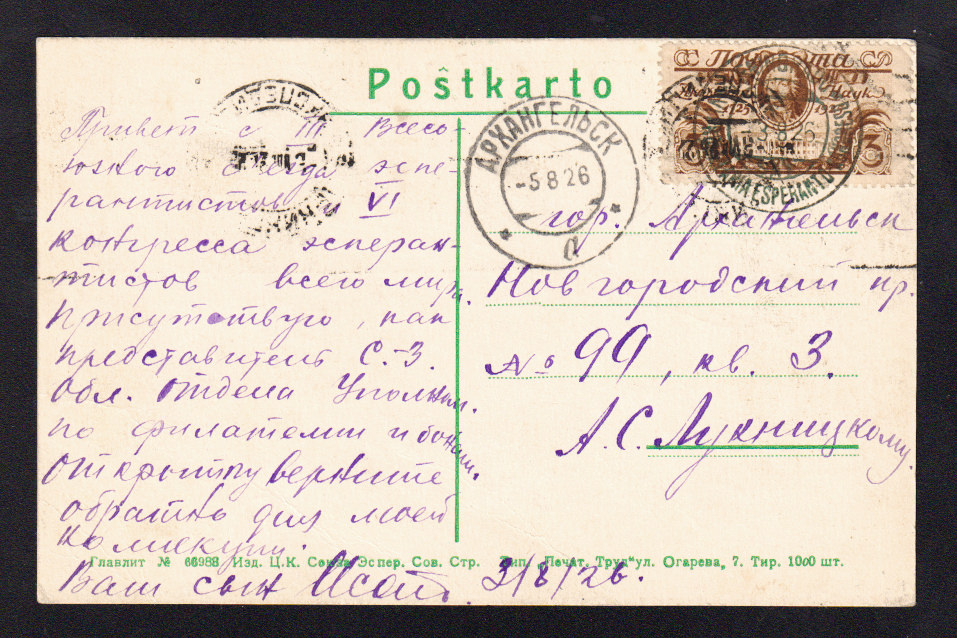 Poŝtkarto
Почта
Наук
1725 1925
3 3
3 8 26
ESPERANTO
АРХАНГЕЛЬСК
-5 8 26
а
Привет с III Всесо-
юзного съезда эспе-
рантистов и VI
конгресса эсперан-
тистов всего мира.
Присутствую, как
представитель С.-З.
Обл. отдела Уполном.
по филателии и бонам.
Открытку верните
обратно для моей
коллекции.
Ваш сын 3/8/26.
гор. Архангельск
Новгородский пр.
№ 99, кв. 3.
А. С. Лукницкому.
Главлит № 66988 Изд. Ц.К. Союза Эспер. Сов. Стр. Тип. „Печат. Труд" ул. Огарева, 7. Тир. 1000 шт.